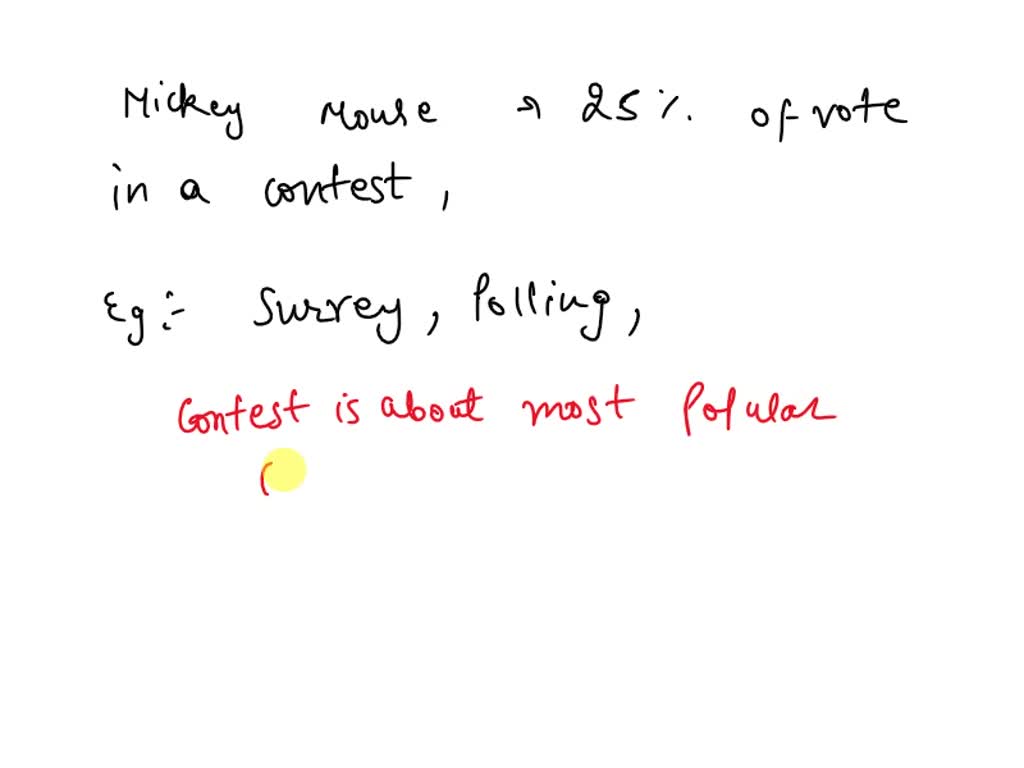 Mickey Mouse → 25% of vote
in a contest,
Eg :- Survey, Polling,
Contest is about most Popular
(